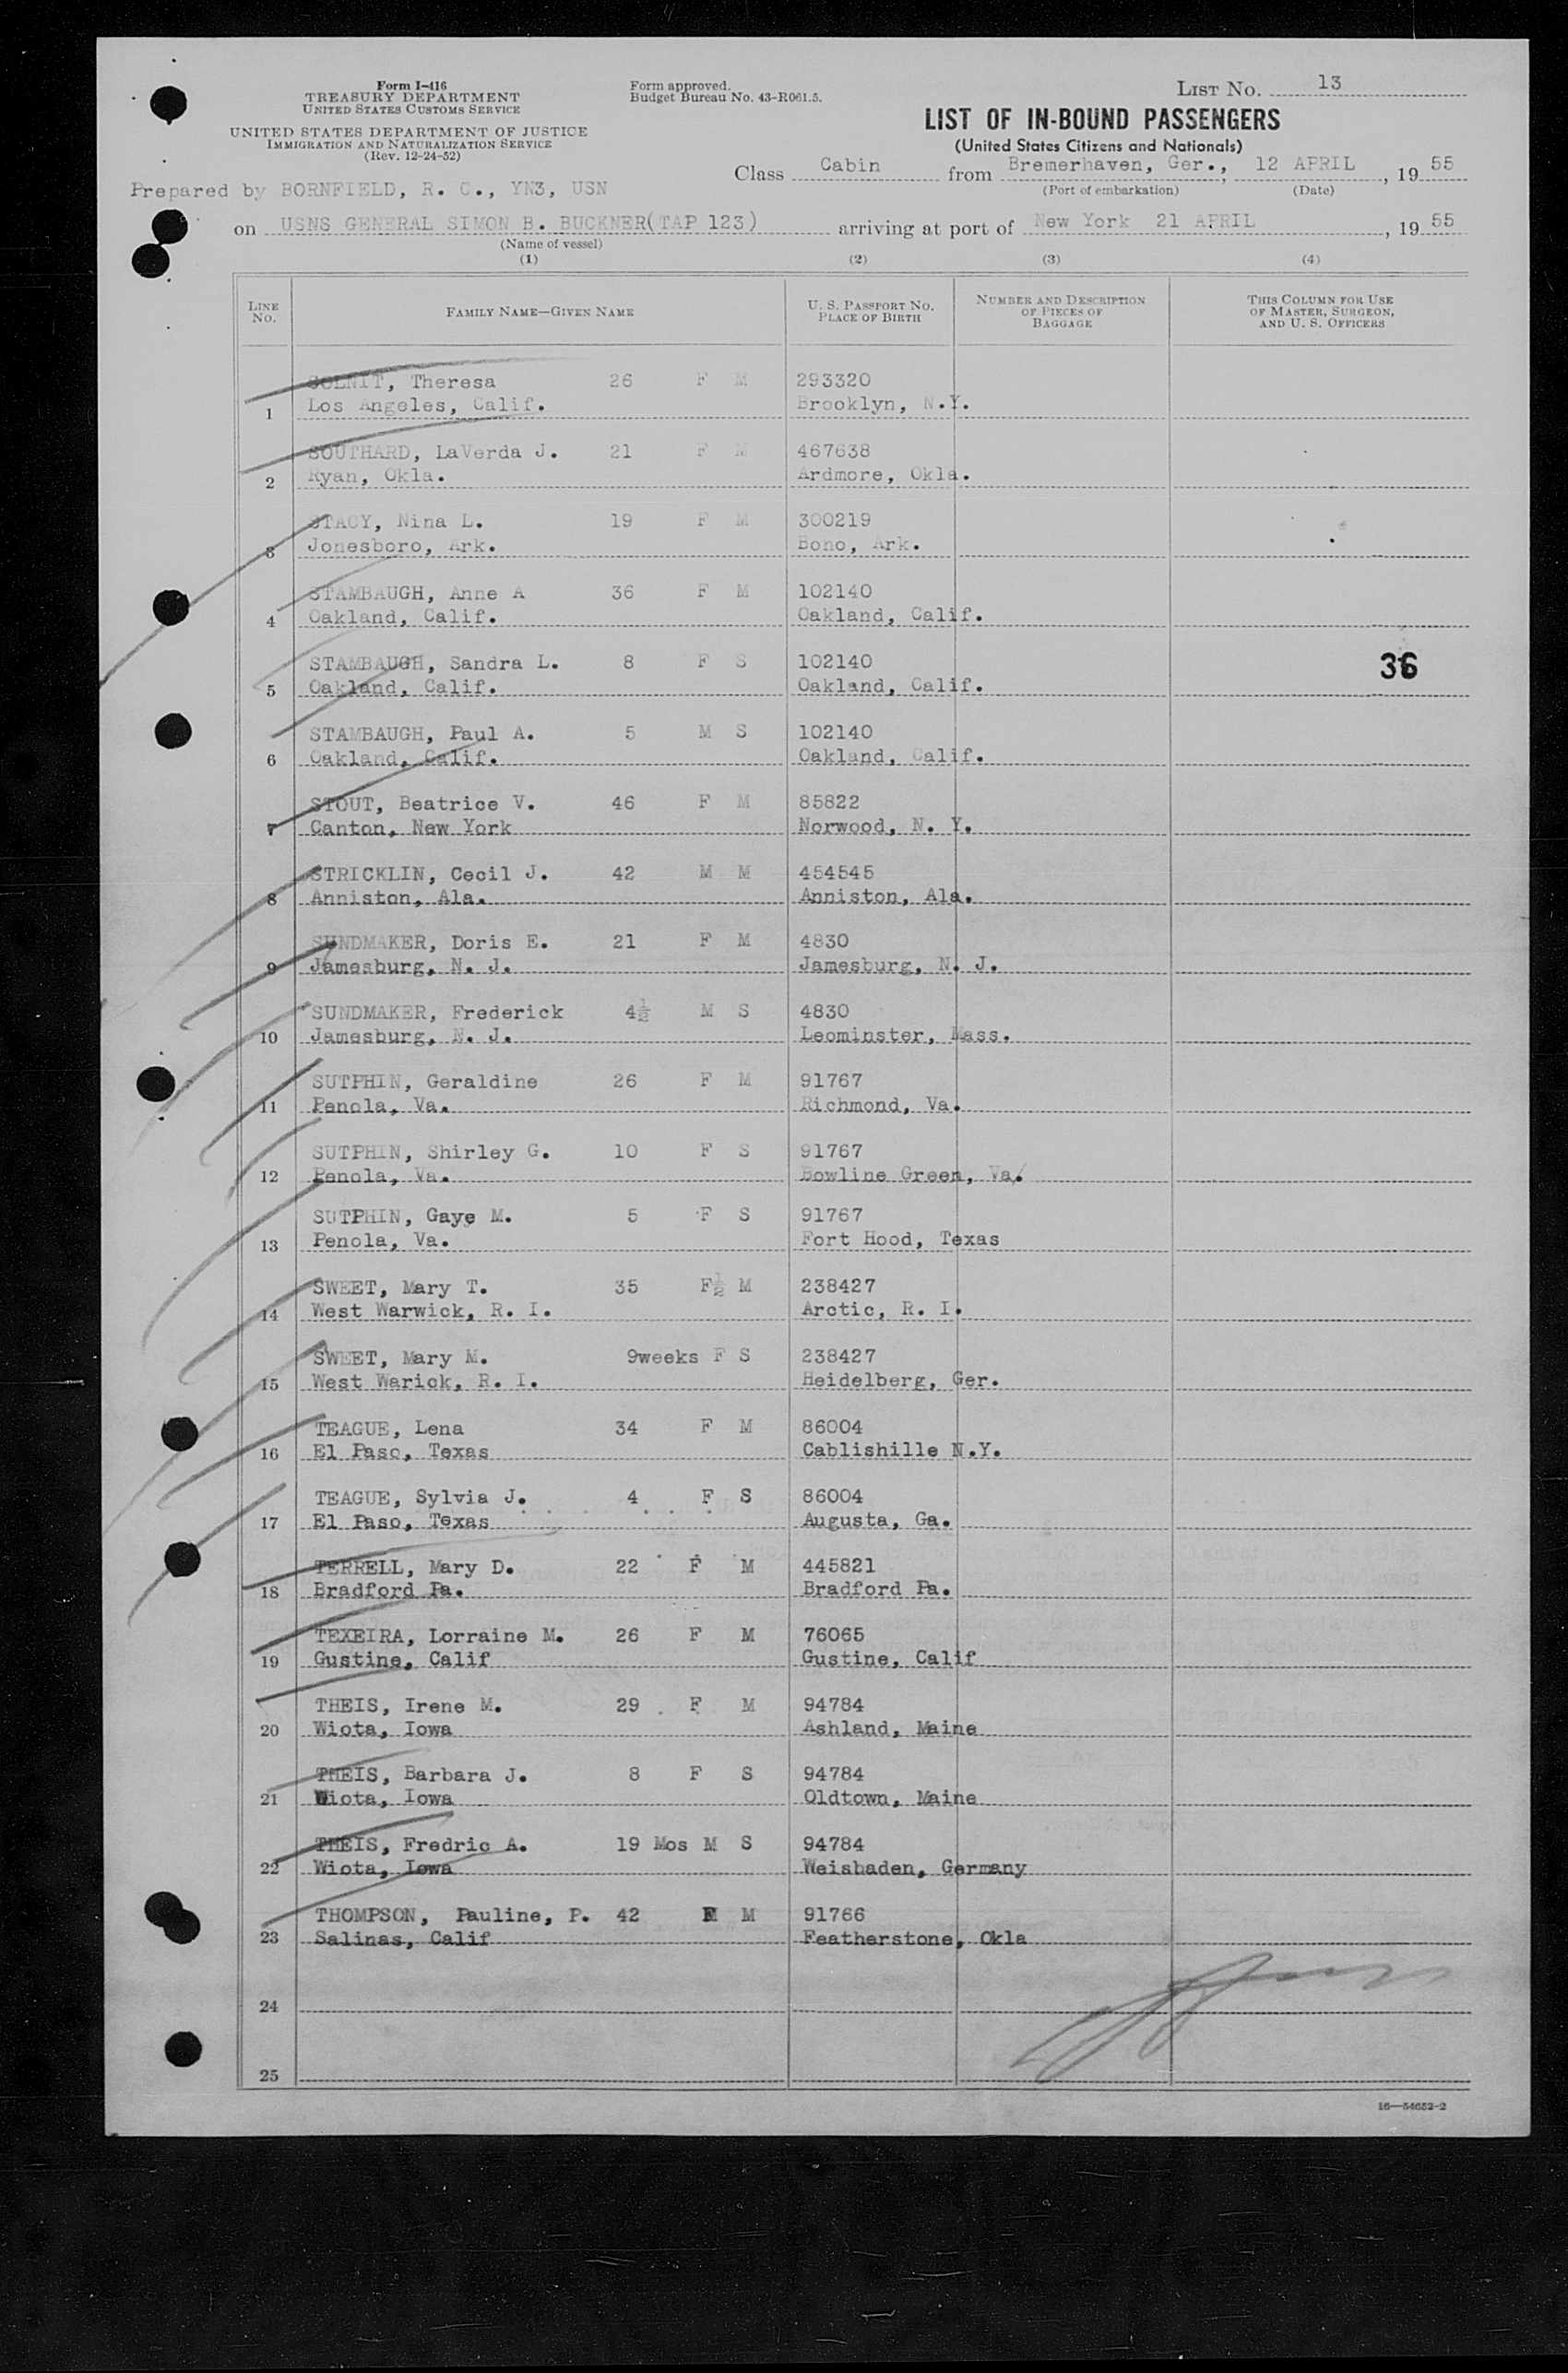 Form I-416
TREASURY DEPARTMENT
UNITED STATES CUSTOMS SERVICE
UNITED STATES DEPARTMENT OF JUSTICE
IMMIGRATION AND NATURALIZATION SERVICE
(Rev. 12-24-52)
Form approved.
Budget Bureau No. 43-R061.5.
LIST NO. 13
LIST OF IN-BOUND PASSENGERS
(United States Citizens and Nationals)
Class Cabin from Bremerhaven, Ger., 12 APRIL, 19 55
(Port of embarkation) (Date)
Prepared by BORNFIELD, R. C., YN3, USN
on USNS GENERAL SIMON B. BUCKNER(TAP 123) arriving at port of New York 21 APRIL, 19 55
(Name of vessel)
(1) (2) (3) (4)
LINE NO. FAMILY NAME—GIVEN NAME U. S. PASSPORT NO. PLACE OF BIRTH NUMBER AND DESCRIPTION OF PIECES OF BAGGAGE THIS COLUMN FOR USE OF MASTER, SURGEON, AND U. S. OFFICERS
SOLNIT, Theresa 26 F M 293320
1 Los Angeles, Calif. Brooklyn, N.Y.
SOUTHARD, LaVerda J. 21 F M 467638
2 Ryan, Okla. Ardmore, Okla.
STACY, Nina L. 19 F M 300219
3 Jonesboro, Ark. Bono, Ark.
STAMBAUGH, Anne A 36 F M 102140
4 Oakland, Calif. Oakland, Calif.
STAMBAUGH, Sandra L. 8 F S 102140 36
5 Oakland, Calif. Oakland, Calif.
STAMBAUGH, Paul A. 5 M S 102140
6 Oakland, Calif. Oakland, Calif.
STOUT, Beatrice V. 46 F M 85822
7 Canton, New York Norwood, N. Y.
STRICKLIN, Cecil J. 42 M M 454545
8 Anniston, Ala. Anniston, Ala.
SUNDMAKER, Doris E. 21 F M 4830
9 Jamesburg, N. J. Jamesburg, N. J.
SUNDMAKER, Frederick 4½ M S 4830
10 Jamesburg, N. J. Leominster, Mass.
SUTPHIN, Geraldine 26 F M 91767
11 Penola, Va. Richmond, Va.
SUTPHIN, Shirley G. 10 F S 91767
12 Penola, Va. Bowline Green, Va.
SUTPHIN, Gaye M. 5 F S 91767
13 Penola, Va. Fort Hood, Texas
SWEET, Mary T. 35 F½ M 238427
14 West Warwick, R. I. Arctic, R. I.
SWEET, Mary M. 9weeks F S 238427
15 West Warick, R. I. Heidelberg, Ger.
TEAGUE, Lena 34 F M 86004
16 El Paso, Texas Cablishille N.Y.
TEAGUE, Sylvia J. 4 F S 86004
17 El Paso, Texas Augusta, Ga.
TERRELL, Mary D. 22 F M 445821
18 Bradford Pa. Bradford Pa.
TEXEIRA, Lorraine M. 26 F M 76065
19 Gustine, Calif Gustine, Calif
THEIS, Irene M. 29 F M 94784
20 Wiota, Iowa Ashland, Maine
THEIS, Barbara J. 8 F S 94784
21 Wiota, Iowa Oldtown, Maine
THEIS, Fredric A. 19 Mos M S 94784
22 Wiota, Iowa Weisbaden, Germany
THOMPSON, Pauline, P. 42 F M 91766
23 Salinas, Calif Featherstone, Okla
24
25
16—54652-2